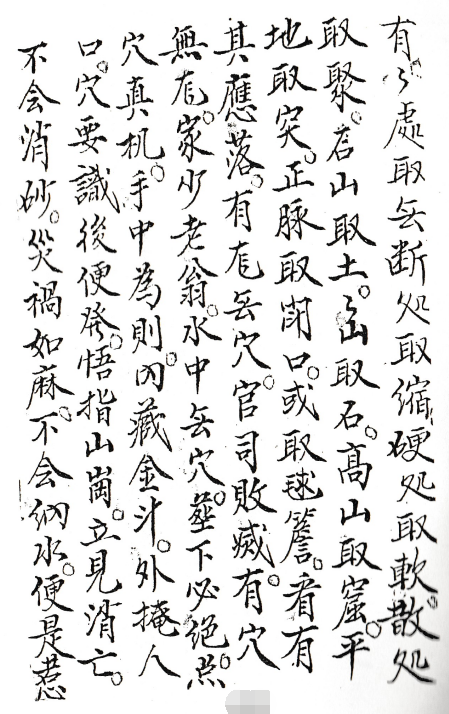 有〻處取无断処取缩。硬処取軟。散処
取聚。石山取土。土山取石。高山取窟。平
地取突。正脉取闭口。或取毬簷。看有
其應落。有龙无穴。官司敗威。有穴
無龙。家少老翁。水中无穴。塟下必绝。点
穴真机。手中為則。内藏金斗。外掩人
口。穴要識後便發。悟指山崗。立見消亡。
不会消砂。災禍如麻。不会纳水。便是惹